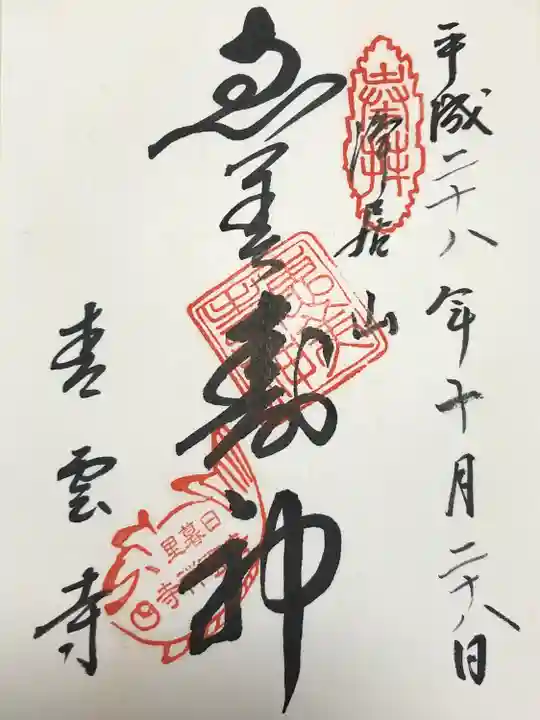 平成二十八年十月二十八日
浄居山
恵美寿神
青雲寺
日暮里